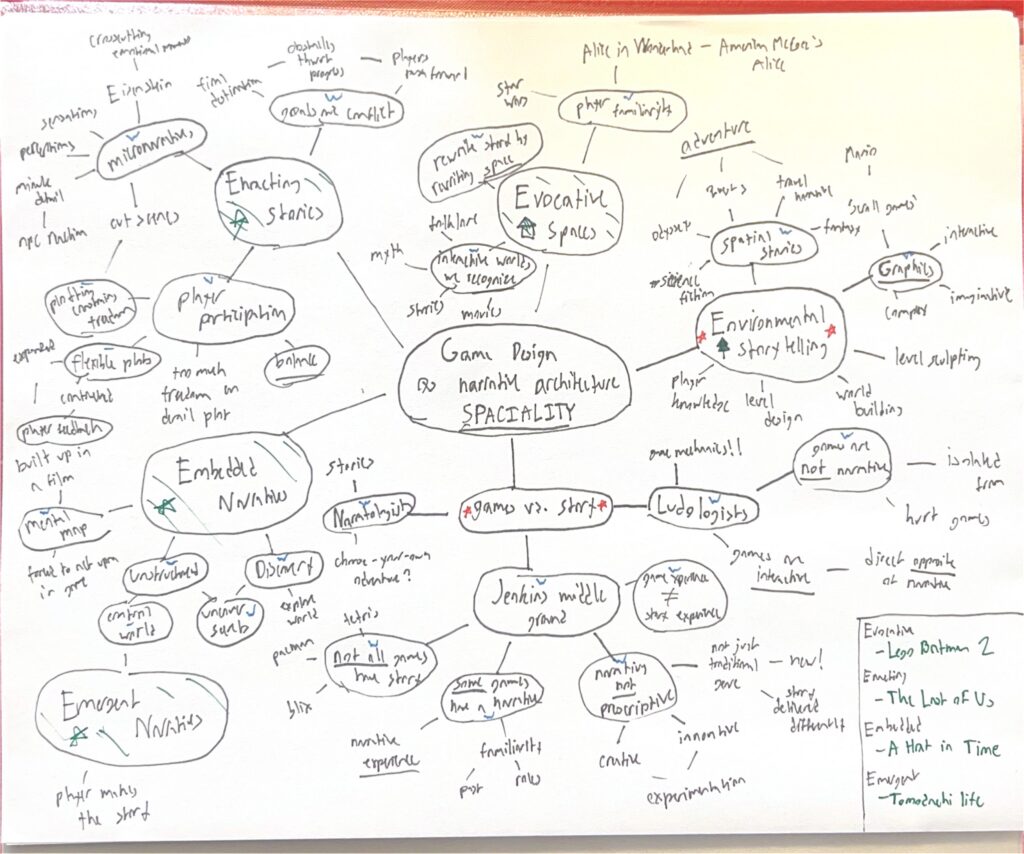 Crosscutting
emotional
Eisenstein
sensations
perceptions
minute
detail
npc reaction
micronarratives
cut scenes
obstacles
thwart
progress
players
move forward
final
destination
goals and conflict
Enacting
Stories
Alice in Wonderland – American McGee's
Alice
Star
Wars
player
familiarity
rewrite story by
rewriting space
Evocative
Spaces
folklore
myth
interactive worlds
we recognize
stories
movies
adventure
travel
narrative
odyssey
fantasy
spatial
stories
science
fiction
Mario
'scroll games'
Graphics
interactive
imaginative
complex
Environmental
Storytelling
level sculpting
world
building
level
design
player
knowledge
plotting
constraining
freedom
player
participation
expanded
flexible plots
contracted
balance
too much
freedom
derail plot
player feedback
built up in
a film
Game Design
narrative architecture
SPACIALITY
Embedded
Narratives
mental
map
forced to act upon
in game
unstructured
Discovery
control
world
uncover
secrets
explore
world
Emergent
Narratives
player makes
the story
stories
Narratologists
choose-your-own
adventure?
games vs. story
game mechanics!!
Ludologists
games are
not narrative
isolated
from
hurt games
games are
interactive
direct opposite
of narrative
Jenkins middle
ground
game experience
≠
story experience
tetris
pacman
blix
Not all games
have story
some games
have a narrative
narrative
experience
familiarity
plot
roles
narrative
not
prescriptive
not just
traditional
new!
story
delivered
differently
creative
innovative
experimentation
Evocative
- Lego Batman 2
Enacting
- The Last of Us
Embedded
- A Hat in Time
Emergent
- Tomodachi life